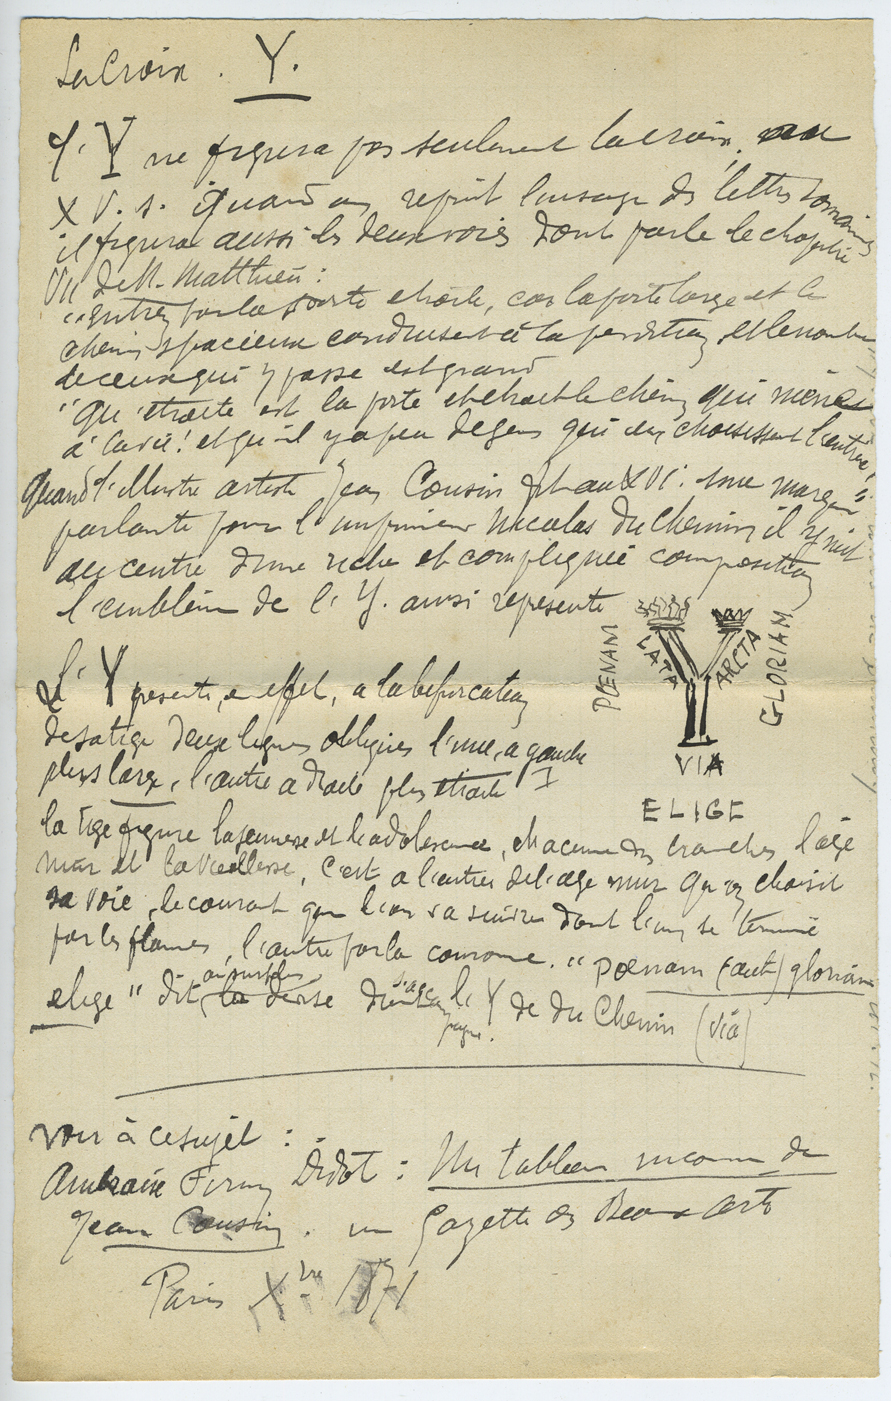 La Croix . Y.
L'Y ne figura pas seulement la croix, au
XV. s. quand on reprit l'usage des lettres romaines
il figura aussi les deux voies dont parle le chapitre
VII de St. Matthieu :
"Entrez par la porte etroite, car la porte large et le
chemin spacieux conduisent à la perdition, et le nombre
de ceux qui y passe est grand
"Qu'etroite est la porte et etroit le chemin qui mène
à la vie! et qu'il y a peu de gens qui en choisissent l'entrée
Quand l'illustre artiste Jean Cousin fit au XVI. une marque
parlante pour l'imprimeur Nicolas du Chemin, il y mit
au centre d'une riche et compliquée composition
l'emblème de l'Y. ainsi représenté
PŒNAM LATA ARCTA GLORIAM
VIA
ELIGE
L'Y presente, en effet, a la bifurcation
de sa tige deux lignes obliques l'une, a gauche
plus large, l'autre a droite plus etroite
la tige figure la jeunesse et l'adolescence, chacune des branches l'âge
mur et la vieillesse, c'est a l'entrée de l'age mur qu'on choisit
sa voie, le courant que l'on va suivre dont l'un se termine
par les flammes, l'autre par la couronne. "Pœnam (aut) gloriam
elige" dit au surplus la devise qui accompagne l'Y de du Chemin (via)
voir à ce sujet :
Ambroise Firmin Didot : Un tableau inconnu de
Jean Cousin. in Gazette des Beaux Arts
Paris Xbre 1871